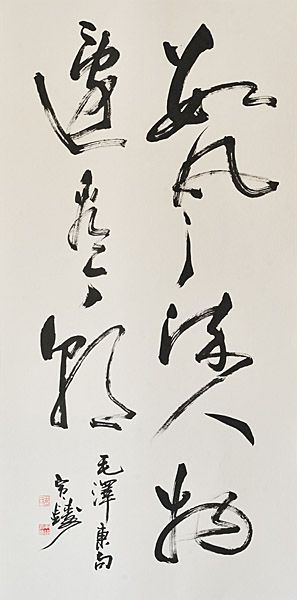 數風流人物
還看今朝
毛澤東句